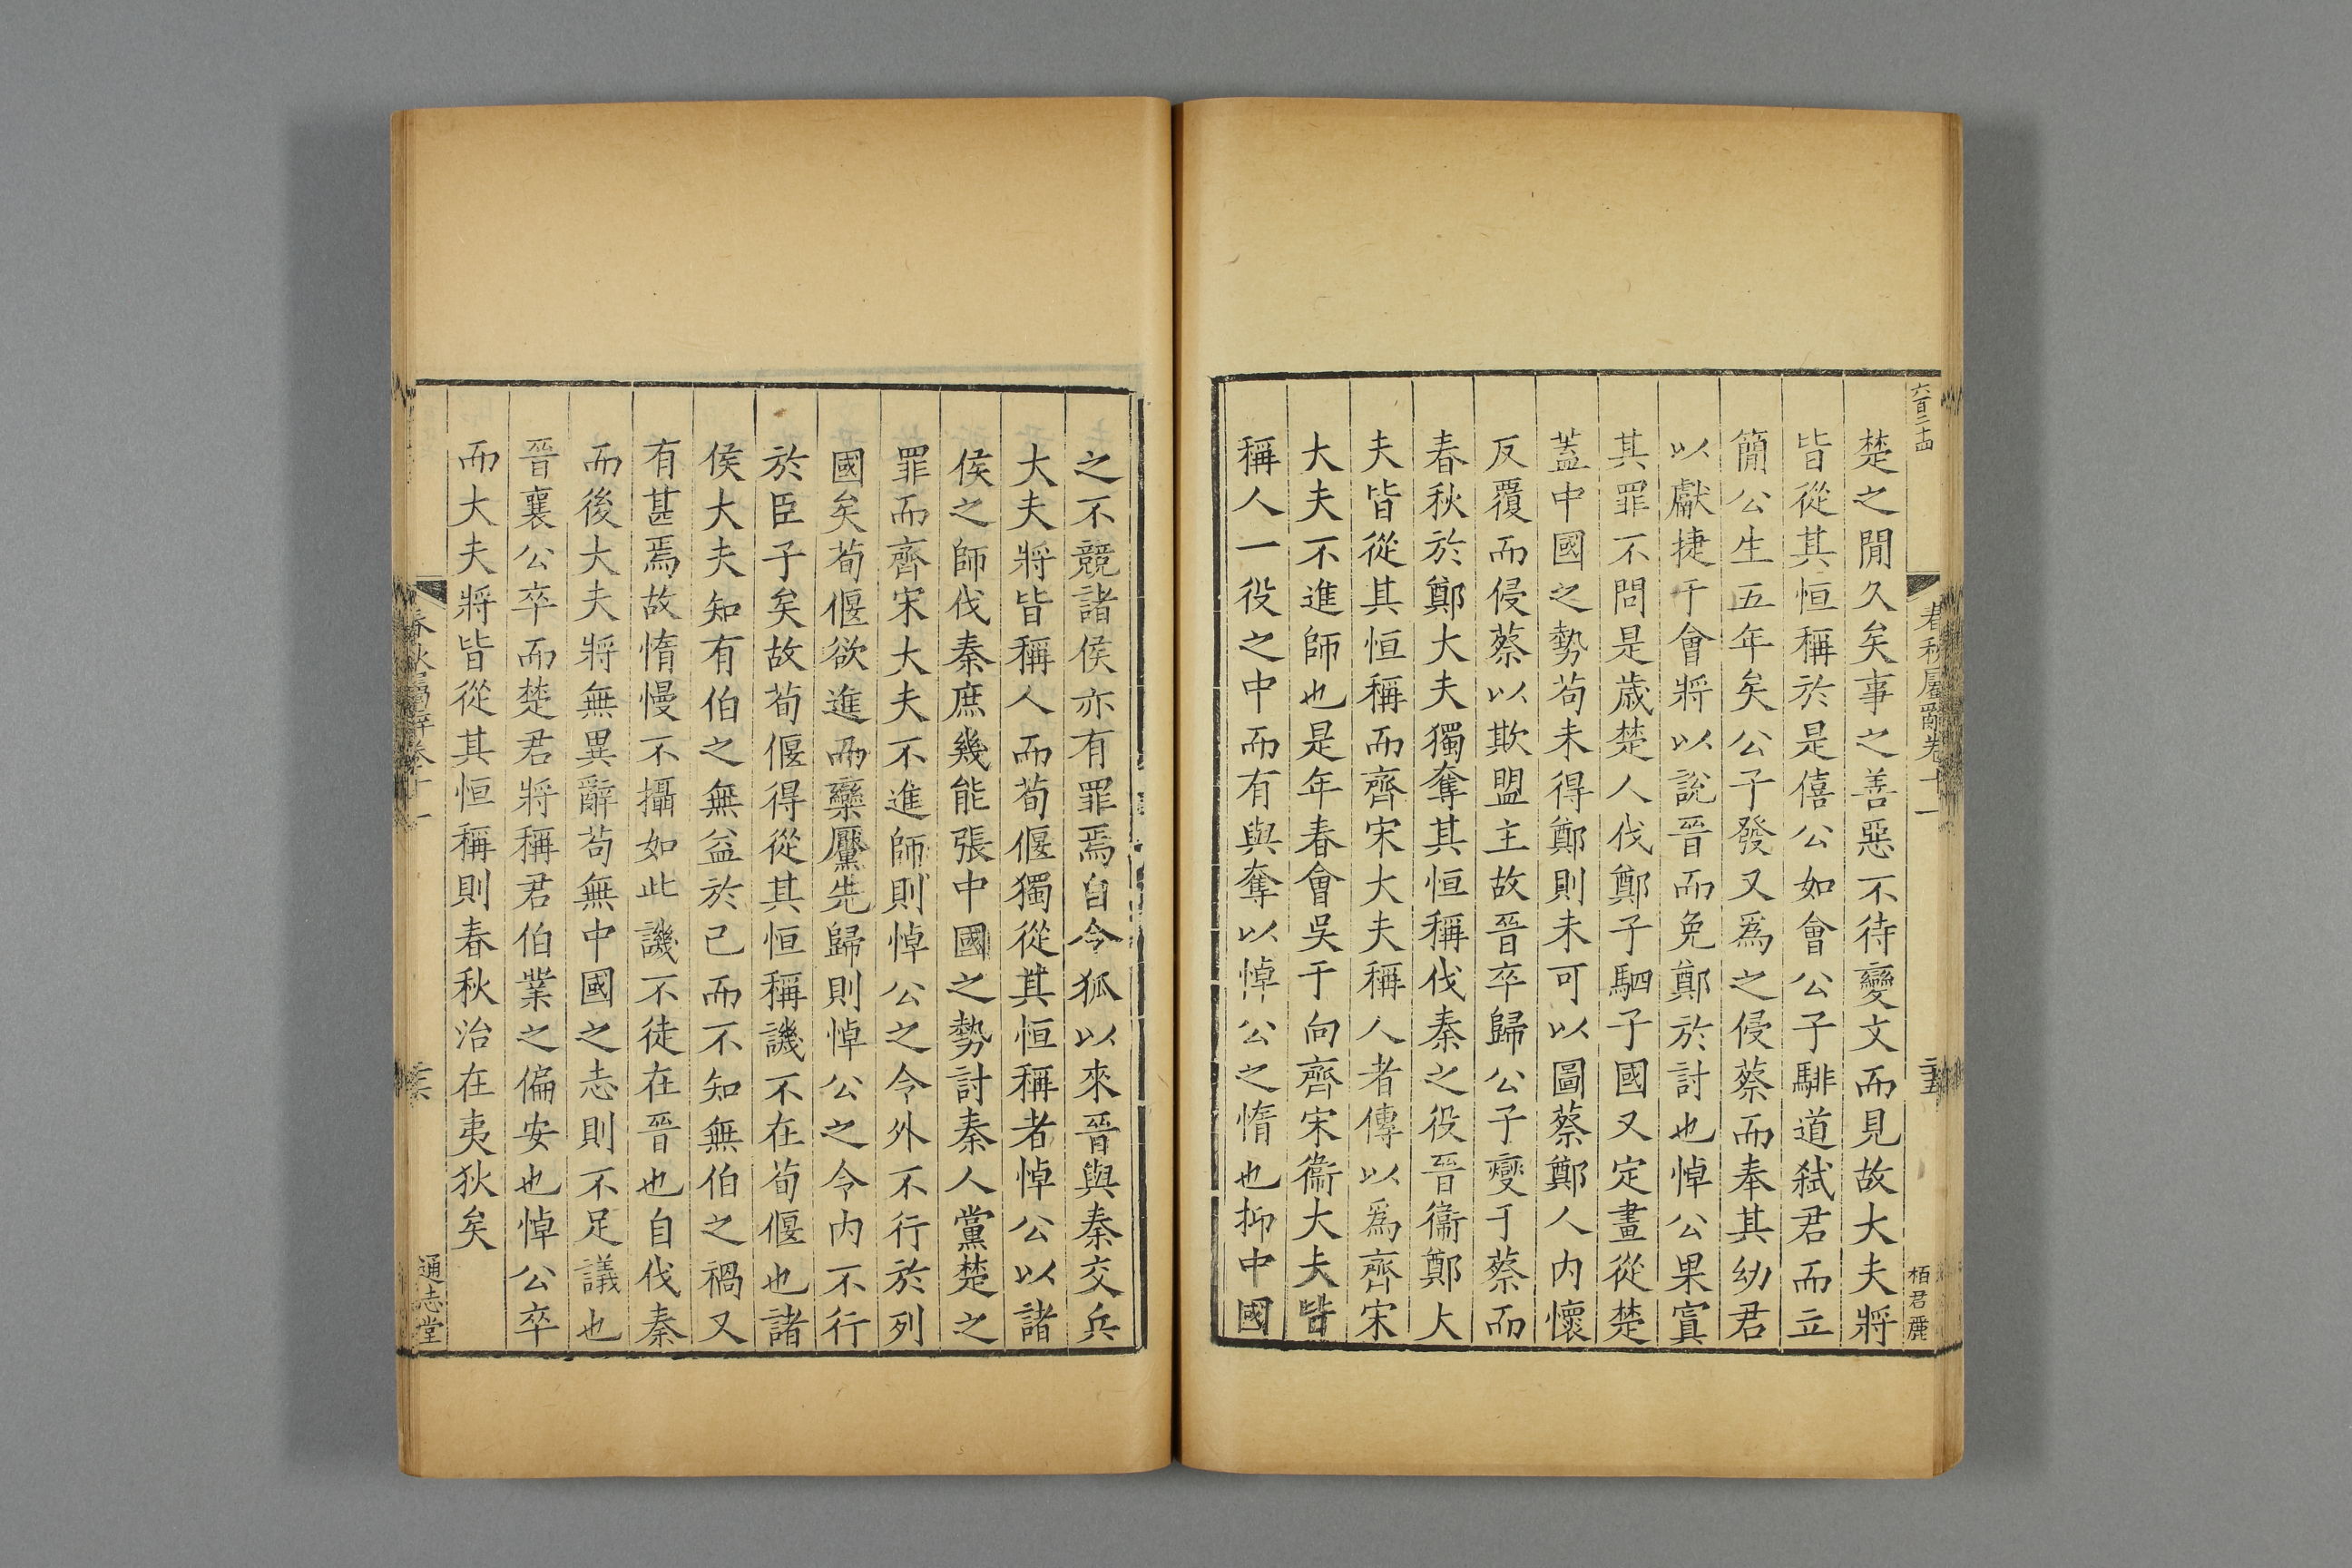 六百二十四
春秋屬辭卷十一
二十五
栢君麗
楚之閒久矣事之善惡不待變文而見故大夫將
皆從其恒稱於是僖公如會公子騑道弑君而立
簡公生五年矣公子發又爲之侵蔡而奉其幼君
以獻捷于會將以說晉而免鄭於討也悼公果寘
其罪不問是歳楚人伐鄭子駟子國又定畫從楚
蓋中國之勢苟未得鄭則未可以圖蔡鄭人内懷
反覆而侵蔡以欺盟主故晉卒歸公子燮于蔡而
春秋於鄭大夫獨奪其恒稱伐秦之役晉衞鄭大
夫皆從其恒稱而齊宋大夫稱人者傳以爲齊宋
大夫不進師也是年春會吳于向齊宋衞大夫皆
稱人一役之中而有與奪以悼公之惰也抑中國
之不競諸侯亦有罪焉自令狐以來晉與秦交兵
大夫將皆稱人而荀偃獨從其恒稱者悼公以諸
侯之師伐秦庶幾能張中國之勢討秦人黨楚之
罪而齊宋大夫不進師則悼公之令外不行於列
國矣荀偃欲進而欒黶先歸則悼公之令内不行
於臣子矣故荀偃得從其恒稱譏不在荀偃也諸
侯大夫知有伯之無益於己而不知無伯之禍又
有甚焉故惰慢不攝如此譏不徒在晉也自伐秦
而後大夫將無異辭苟無中國之志則不足議也
晉襄公卒而楚君將稱君伯業之偏安也悼公卒
而大夫將皆從其恒稱則春秋治在夷狄矣
春秋屬辭卷十一
二十六
通志堂